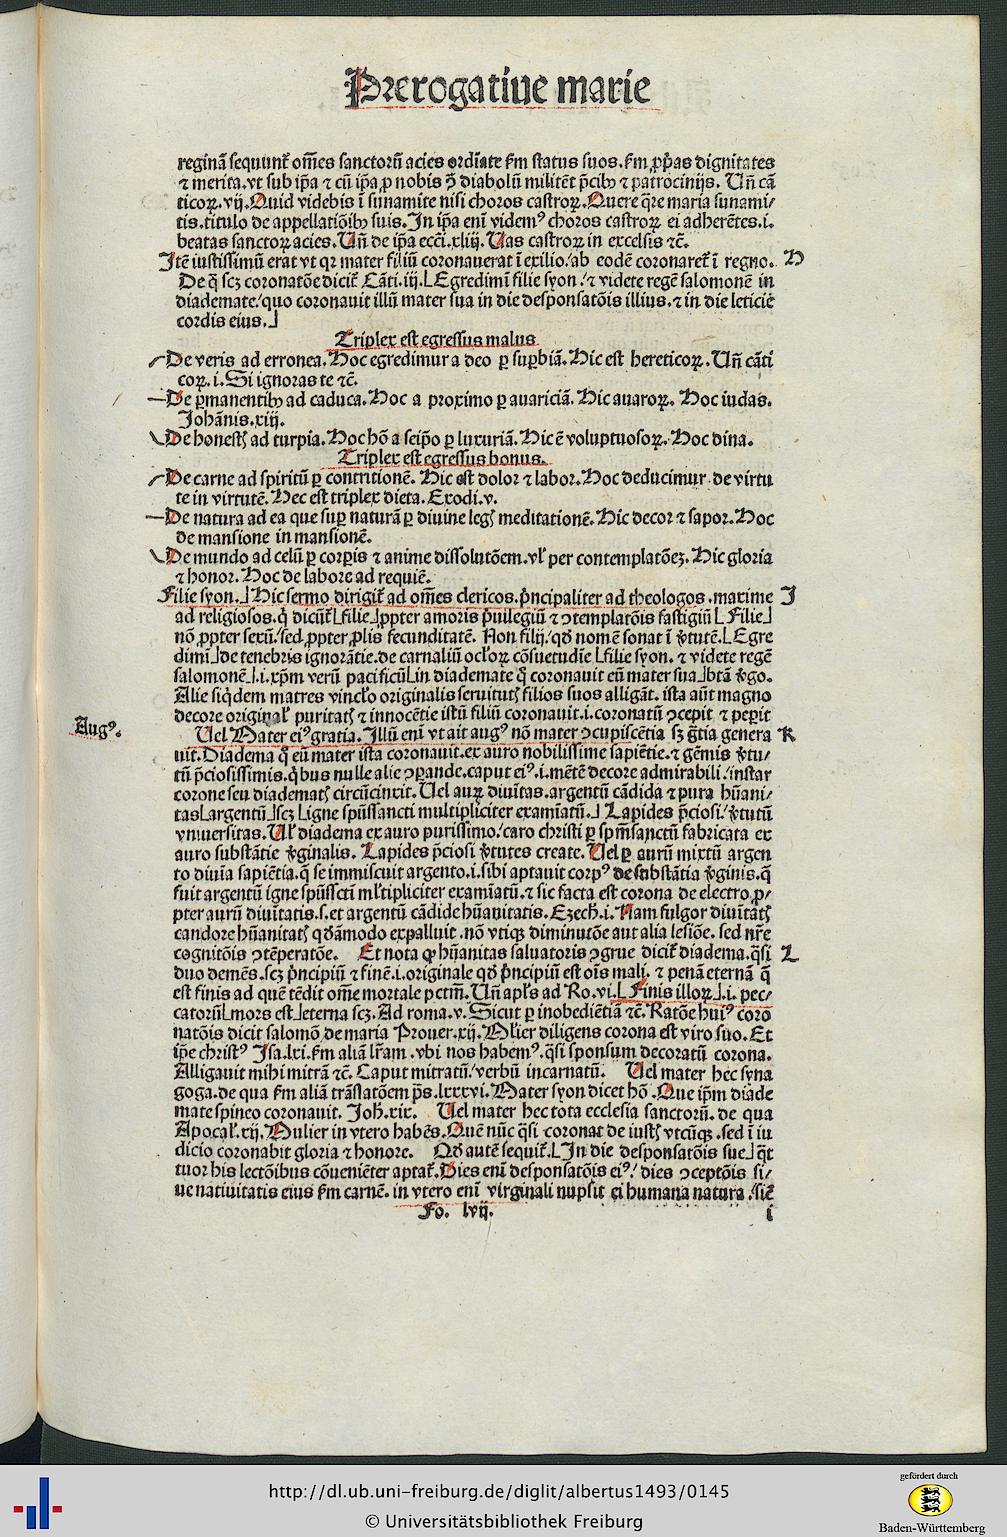 Prerogatiue marie
reginā sequunt᷑ om̄es sanctorū acies ordīate ẜm status suos. ẜm ꝓp̄as dignitates
⁊ merita. vt sub ip̄a ⁊ cū ip̄a ꝓ nobis ꝯ̄ diabolū militēt p̄cibꝫ ⁊ patrocinijs. Un̄ cā
ticoꝝ. vij. Quid videbis ī sunamite nisi choros castroꝝ. Quere q̄re maria sunami/
tis. titulo de appellatiōibꝫ suis. In ip̄a enī videmꝰ choros castroꝝ ei adherētes. i.
beatas sanctoꝝ acies. Un̄ de ip̄a ecc̄i. xliij. Uas castroꝝ in excelsis ⁊c̄.
Itē iustissimū erat vt qꝛ mater filiū coronauerat ī exilio/ ab eodē coronaret᷑ ī regno. H
De q̄ scꝫ coronatōe dicit᷑ Cāti. iij. ⌊Egredimī filie syon/ ⁊ videte regē salomonē in
diademate/ quo coronauit illū mater sua in die desponsatōis illius. ⁊ in die leticie
cordis eius.⌋
Triplex est egressus malus
De veris ad erronea. Hoc egredimur a deo ꝑ suꝑbiā. Hic est hereticoꝝ. Un̄ cāti
coꝝ. i. Si ignoras te ⁊c̄.
De ꝑmanentibꝫ ad caduca. Hoc a proximo ꝑ auariciā. Hic auaroꝝ. Hoc iudas.
Johānis. xiij.
De honestꝭ ad turpia. Hoc hō a seip̄o ꝑ luxuriā. Hic ē voluptuosoꝝ. Hoc dina.
Triplex est egressus bonus.
De carne ad spiritū ꝑ contritionē. Hic est dolor ⁊ labor. Hoc deducimur de virtu
te in virtutē. Hec est triplex dieta. Exodi. v.
De natura ad ea que suꝑ naturā ꝑ diuine legꝭ meditationē. Hic decor ⁊ sapor. Hoc
de mansione in mansionē.
De mundo ad celū ꝑ corꝑis ⁊ anime dissolutōem. vl̓ per contemplatōeꝫ. Hic gloria
⁊ honor. Hoc de labore ad requiē.
Filie syon.⌋ Hic sermo dirigit᷑ ad om̄es clericos. p̄ncipaliter ad theologos. maxime I
ad religiosos. q̄ dicūt᷑ ⌊filie⌋ ꝓpter amoris p̄uilegiū ⁊ ꝯtemplatōis fastigiū ⌊Filie⌋
nō ꝓpter sexū/ sed ꝓpter ꝓlis fecunditatē. Non filij/ qd̄ nomē sonat ī v̄tutē. ⌊Egre
dimī⌋ de tenebris ignorātie. de carnaliū ocl̓oꝝ cōsuetudīe ⌊filie syon. ⁊ videte regē
salomonē⌋ .i. xp̄m verū pacificū ⌊in diademate q̄ coronauit eū mater sua⌋ btā v̄go.
Alie siq̄dem matres vincl̓o originalis seruitutꝭ filios suos alligāt. ista aūt magno
decore original̓ puritatꝭ ⁊ innocētie istū filiū coronauit. i. coronatū ꝯcepit ⁊ peꝑit
Augꝰ.
Uel Mater eiꝰ gratia. Illū enī vt ait augꝰ nō mater ꝯcupiscētia sꝫ gr̄tia genera K
uit. Diadema q̄ eū mater ista coronauit. ex auro nobilissime sapiētie. ⁊ gēmis v̄tu/
tū p̄ciosissimis. q̄bus nulle alie ꝯꝑande. caput eiꝰ .i. mētē decore admirabili/ instar
corone seu diadematꝭ circūcinxit. Uel auꝝ diuītas. argentū cādida ⁊ pura hūani/
tas ⌊argentū⌋ scꝫ ⌊igne spūssancti multipliciter examīatū.⌋ Lapides p̄ciosi/ v̄tutū
vniuersitas. Ul̓ diadema ex auro purissimo/ caro christi ꝑ spm̄sanctū fabricata ex
auro substātie v̄ginalis. Lapides p̄ciosi v̄tutes create. Uel ꝑ aurū mixtū argen
to diuīa sapiētia. q̄ se immiscuit argento. i. sibi aptauit corpꝰ de substātia v̄ginis. q̄
fuit argentū igne spūsscti ml̓tipliciter examīatū. ⁊ sic facta est corona de electro. ꝓ/
pter aurū diuītatis. s. et argentū cādide hūanitatis. Ezech̄. i. Nam fulgor diuītatꝭ
candore hūanitatꝭ qd̄āmodo expalluit. nō vtiqꝫ diminutōe aut alia lesiōe. sed nr̄e
cognitōis ꝯtēperatōe. Et nota ꝙ hūanitas saluatoris ꝯgrue dicit᷑ diadema. q̄si L
duo demēs. scꝫ p̄ncipiū ⁊ finē. i. originale qd̄ p̄ncipiū est oīs mali. ⁊ penā eternā q̄
est finis ad quē tēdit om̄e mortale pctm̄. Un̄ apl̓s ad Ro. vi. ⌊Finis illoꝝ⌋ .i. pec/
catorū ⌊mors est⌋ eterna scꝫ. Ad roma. v. Sicut ꝑ inobediētiā ⁊c̄. Ratōe huiꝰ coro
natōis dicit salomō de maria Prouer. xij. Ml̓ier diligens corona est viro suo. Et
ip̄e christꝰ Isa. lxi. ẜm aliā lr̄am. vbi nos habemꝰ. q̄si sponsum decoratū corona.
Alligauit mihi mitrā ⁊c̄. Caput mitratū/ verbū incarnatū. Uel mater hec syna
goga. de qua ẜm aliā trāslatōem p̄s. lxxxvi. Mater syon dicet hō. Que ip̄m diade
mate spineo coronauit. Joh̄. xix. Uel mater hec tota ecclesia sanctorū. de qua
Apocal̓. xij. Mulier in vtero habēs. Quē nūc q̄si coronat de iustꝭ vtcūqꝫ. sed ī iu
dicio coronabit gloria ⁊ honore. Qd̄ autē sequit᷑. ⌊In die desponsatōis sue⌋ q̄t
tuor his lectōibus cōueniēter aptat᷑. Dies enī desponsatōis eiꝰ/ dies ꝯceptōis si/
ue natiuitatis eius ẜm carnē. in vtero enī virginali nupsit ei humana natura. sic̄
Fo. lvij. i
http://dl.ub.uni-freiburg.de/diglit/albertus1493/0145
© Universitätsbibliothek Freiburg
gefördert durch
Baden-Württemberg